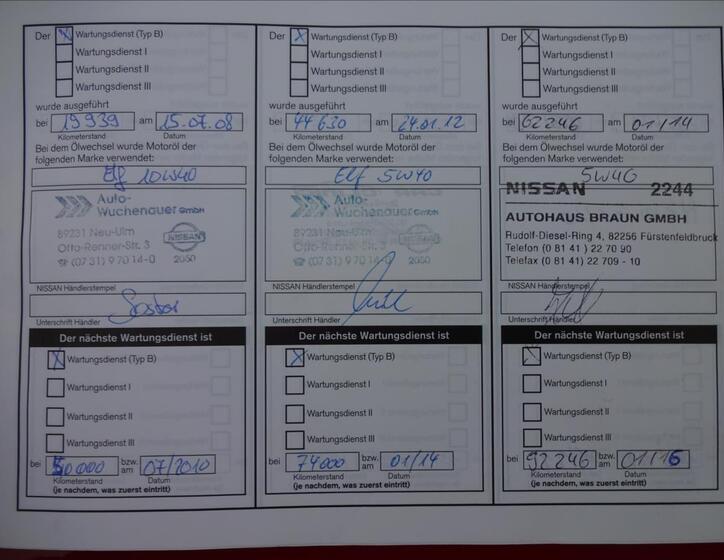 Der X Wartungsdienst (Typ B)
Wartungsdienst I
Wartungsdienst II
Wartungsdienst III
wurde ausgeführt
bei 19939 am 15.07.08
Kilometerstand Datum
Bei dem Ölwechsel wurde Motoröl der
folgenden Marke verwendet:
Elf 10W40
Auto-
Wuchenauer GmbH
89231 Neu-Ulm
Otto-Renner-Str. 3
☎ (07 31) 9 70 14-0
NISSAN
2050
NISSAN Händlerstempel
Unterschrift Händler
Der nächste Wartungsdienst ist
X Wartungsdienst (Typ B)
Wartungsdienst I
Wartungsdienst II
Wartungsdienst III
bei 50000 bzw. am 07/2010
Kilometerstand Datum
(je nachdem, was zuerst eintritt)
Der X Wartungsdienst (Typ B)
Wartungsdienst I
Wartungsdienst II
Wartungsdienst III
wurde ausgeführt
bei 44630 am 24.01.12
Kilometerstand Datum
Bei dem Ölwechsel wurde Motoröl der
folgenden Marke verwendet:
Elf 5W40
Auto-
Wuchenauer GmbH
89231 Neu-Ulm
Otto-Renner-Str. 3
☎ (07 31) 9 70 14-0
NISSAN
2050
NISSAN Händlerstempel
Unterschrift Händler
Der nächste Wartungsdienst ist
X Wartungsdienst (Typ B)
Wartungsdienst I
Wartungsdienst II
Wartungsdienst III
bei 74000 bzw. am 01/14
Kilometerstand Datum
(je nachdem, was zuerst eintritt)
Der X Wartungsdienst (Typ B)
Wartungsdienst I
Wartungsdienst II
Wartungsdienst III
wurde ausgeführt
bei 62246 am 01/14
Kilometerstand Datum
Bei dem Ölwechsel wurde Motoröl der
folgenden Marke verwendet:
5W40
NISSAN 2244
AUTOHAUS BRAUN GMBH
Rudolf-Diesel-Ring 4, 82256 Fürstenfeldbruck
Telefon (0 81 41) 22 70 90
Telefax (0 81 41) 22 709 - 10
NISSAN Händlerstempel
Unterschrift Händler
Der nächste Wartungsdienst ist
X Wartungsdienst (Typ B)
Wartungsdienst I
Wartungsdienst II
Wartungsdienst III
bei 92246 bzw. am 01/16
Kilometerstand Datum
(je nachdem, was zuerst eintritt)